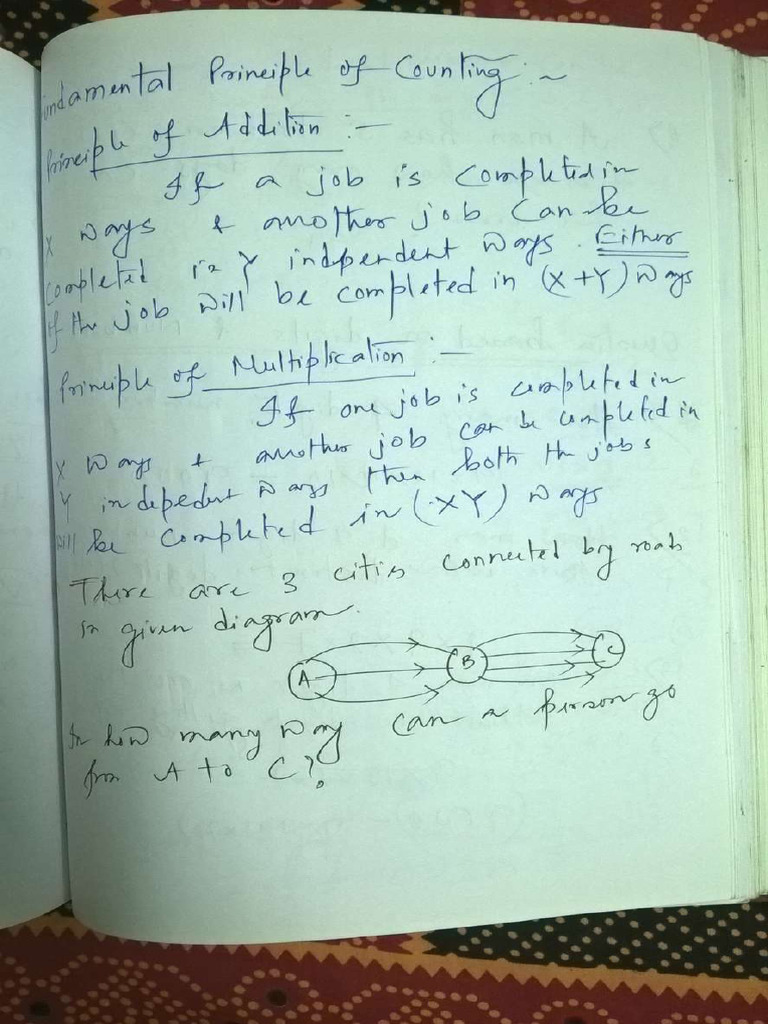 undamental Principle of Counting :~
Principle of Addition :-
If a job is completed in
X ways & another job can be
completed in Y independent ways. Either
of the job will be completed in (X+Y) ways
Principle of Multiplication :-
If one job is completed in
X ways & another job can be completed in
Y indepedent ways then both the jobs
will be completed in (XY) ways
There are 3 cities connected by roads
in given diagram.
A B C
In how many way can a person go
from A to C?